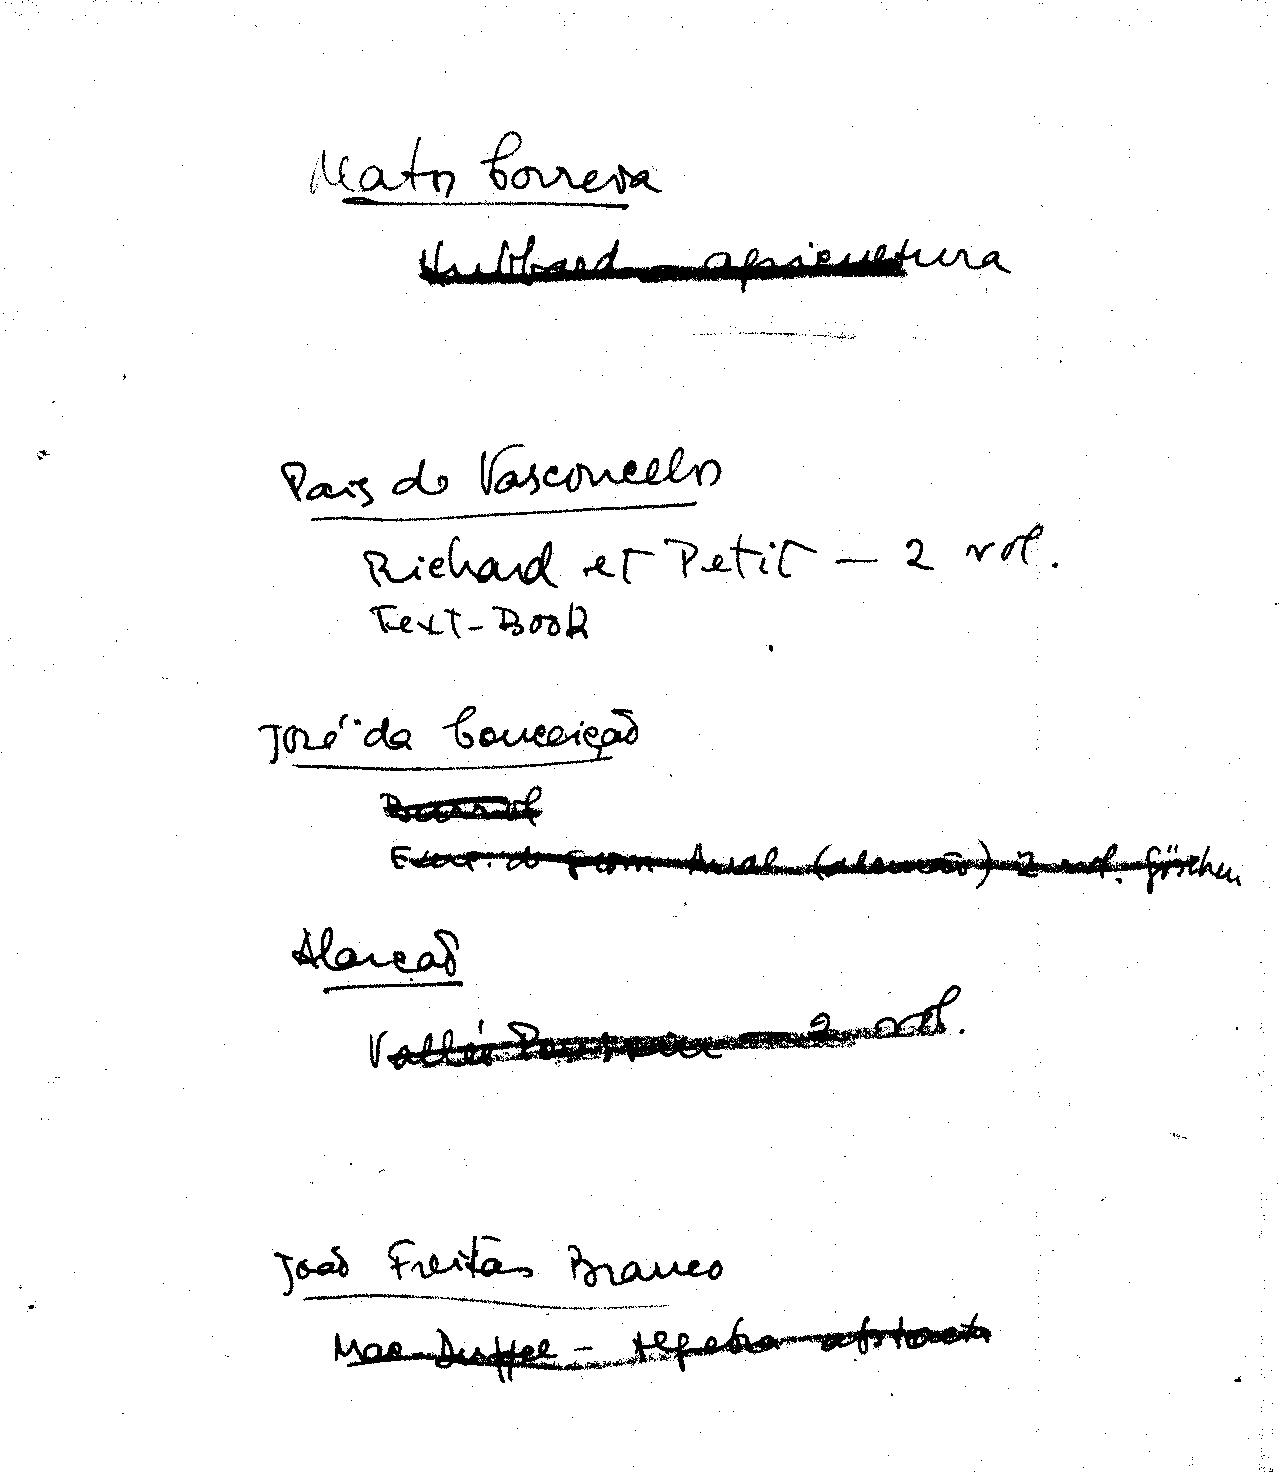 Matos Correia
Hubbard – agricultura
Pais de Vasconcellos
Richard et Petit — 2 vol.
Text-Book
José da Conceição
Exerc. de geom Anal (alemão) 2 vol. Göschen
Alarcão
Vallée Poussin — 2 vol.
João Freitas Branco
Mac-Duffee – Algebra abstracta